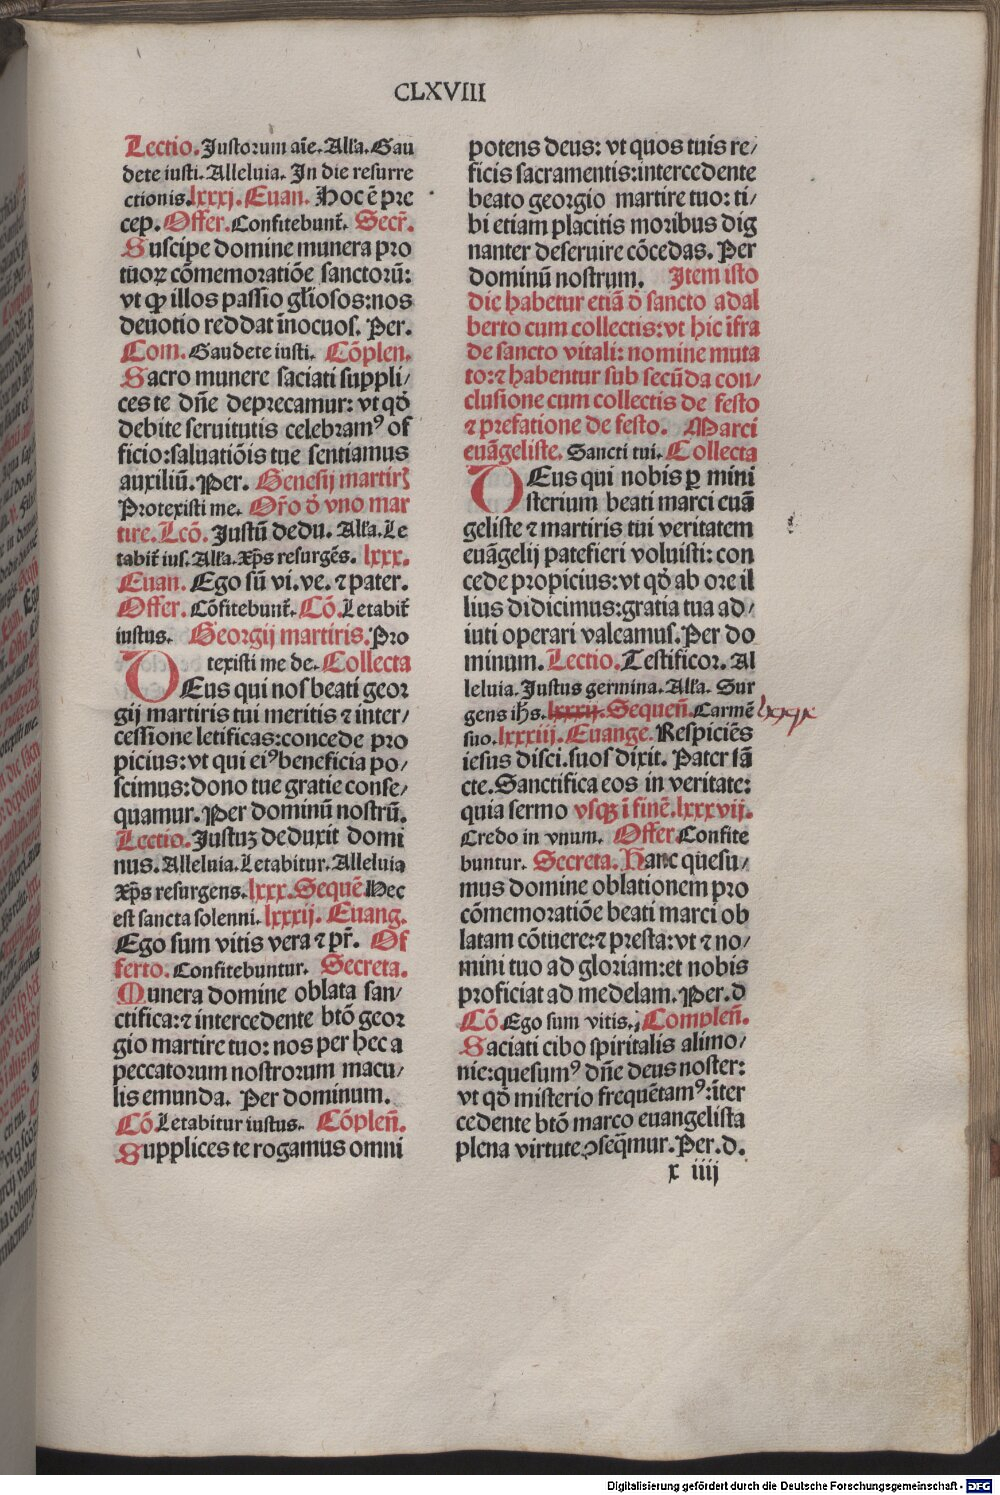 CLXVIII
Lectio. Justorum aīe. Alľa. Gau
dete iusti. Alleluia. In die resurre
ctionis. lxxxj. Euan. Hoc ē pre
cep. Offer. Confitebunt̄. Secr̄.
Suscipe domine munera pro
tuoꝝ cōmemoratiōe sanctorū:
vt qƺ illos passio gľiosos: nos
deuotio reddat īnocuos. Per.
Com. Gaudete iusti. Cōplen.
Sacro munere saciati suppli/
ces te dn̄e deprecamur: vt qd̄
debite seruitutis celebramꝰ of
ficio: saluatiōis tue sentiamus
auxiliū. Per. Genesij martirꝭ
Protexisti me. Or̄o ō vno mar
tire. Lcō. Justū dedu. Alľa. Le
tabit̄ ius. Alľa. Xp̄s resurgēs. lxxx.
Euan. Ego sū vi. ve. ⁊ pater.
Offer. Cōfitebunt̄. Cō. Letabit̄
iustus. Georgij martiris. Pro
texisti me de. Collecta
DEus qui nos beati geor
gij martiris tui meritis ⁊ inter/
cessione letificas: concede pro
picius: vt qui eiꝰ beneficia po/
scimus: dono tue gratie conse/
quamur. Per dominū nostrū.
Lectio. Justuƺ deduxit domi
nus. Alleluia. Letabitur. Alleluia
Xp̄s resurgens. lxxx. Sequē. Hec
est sancta solenni. lxxxij. Euang.
Ego sum vitis vera ⁊ pr̄. Of
ferto. Confitebuntur. Secreta.
Munera domine oblata san/
ctifica: ⁊ intercedente btō geor
gio martire tuo: nos per hec a
peccatorum nostrorum macu/
lis emunda. Per dominum.
Cō Letabitur iustus. Cōplen̄.
Supplices te rogamus omni
potens deus: vt quos tuis re/
ficis sacramentis: intercedente
beato georgio martire tuo: ti/
bi etiam placitis moribus dig
nanter deseruire cōcedas. Per
dominū nostrum. Item isto
die habetur etiā ō sancto adal
berto cum collectis: vt hic īfra
de sancto vitali: nomine muta
to: ⁊ habentur sub secūda con/
clusione cum collectis de festo
⁊ prefatione de festo. Marci
euāgeliste. Sancti tui. Collecta
DEus qui nobis ꝑ mini
sterium beati marci euā
geliste ⁊ martiris tui veritatem
euāgelij patefieri voluisti: con
cede propicius: vt qd̄ ab ore il
lius didicimus: gratia tua ad/
iuti operari valeamus. Per do
minum. Lectio. Testificor. Al
leluia. Justus germina. Alľa. Sur
gens ih̄s. lxxxij. Sequen̄. Carmē
suo. lxxxiij. Euange. Respiciēs
iesus disci. suos dixit. Pater sā
cte. Sanctifica eos in veritate:
quia sermo vsqƺ ī finē. lxxxvij.
Credo in vnum. Offer. Confite
buntur. Secreta. Hanc quesu/
mus domine oblationem pro
cōmemoratiōe beati marci ob
latam cōtuere: ⁊ presta: vt ⁊ no/
mini tuo ad gloriam: et nobis
proficiat ad medelam. Per. d
Cō. Ego sum vitis. Complen̄.
Saciati cibo spiritalis alimo/
nie: quesumꝰ dn̄e deus noster:
vt qd̄ misterio frequētamꝰ: īter
cedente btō marco euangelista
plena virtute ꝯseq̄mur. Per. d.
x iiij
Digitalisierung gefördert durch die Deutsche Forschungsgemeinschaft - DFG